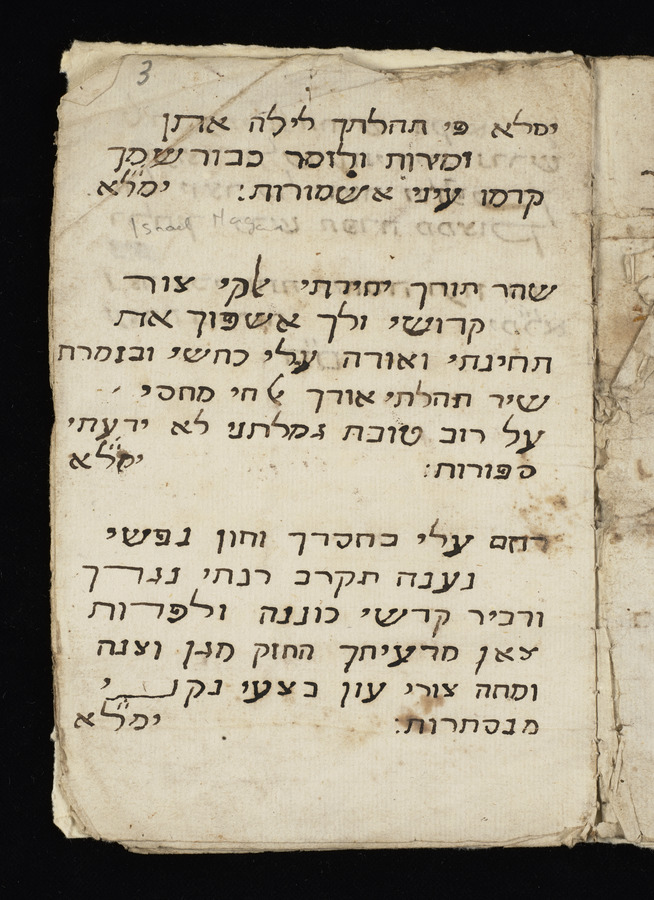 3
ימלא פי תהלתך לילה אתן
זמירות ולזמר כבוד שמך
קדמו עיני אשמורות: ימלא
Israel Nagara
שחר תודך יחידתי אלקי צור
קדושי ולך אשפוך את
תחינתי ואודה עלי כחשי ובזמרת
שיר תהלתי אודך אל חי מחסי
על רוב טובת גמלתני לא ידעתי
ספורות: ימלא
רחם עלי כחסדך וחון נפשי
נענה תקרב רנתי נגדך
ודביר קדשי כוננה ולפדות
צאן מרעיתך החזק מגן וצנה
ומחה צורי עון בצעי נקני
מנסתרות: ימלא